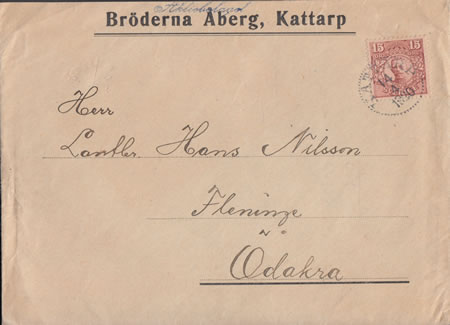 Aktiebolaget
Bröderna Åberg, Kattarp
15 15
KATTARP
Herr
Lantbr. Hans Nilsson
Fleninge
Ödåkra